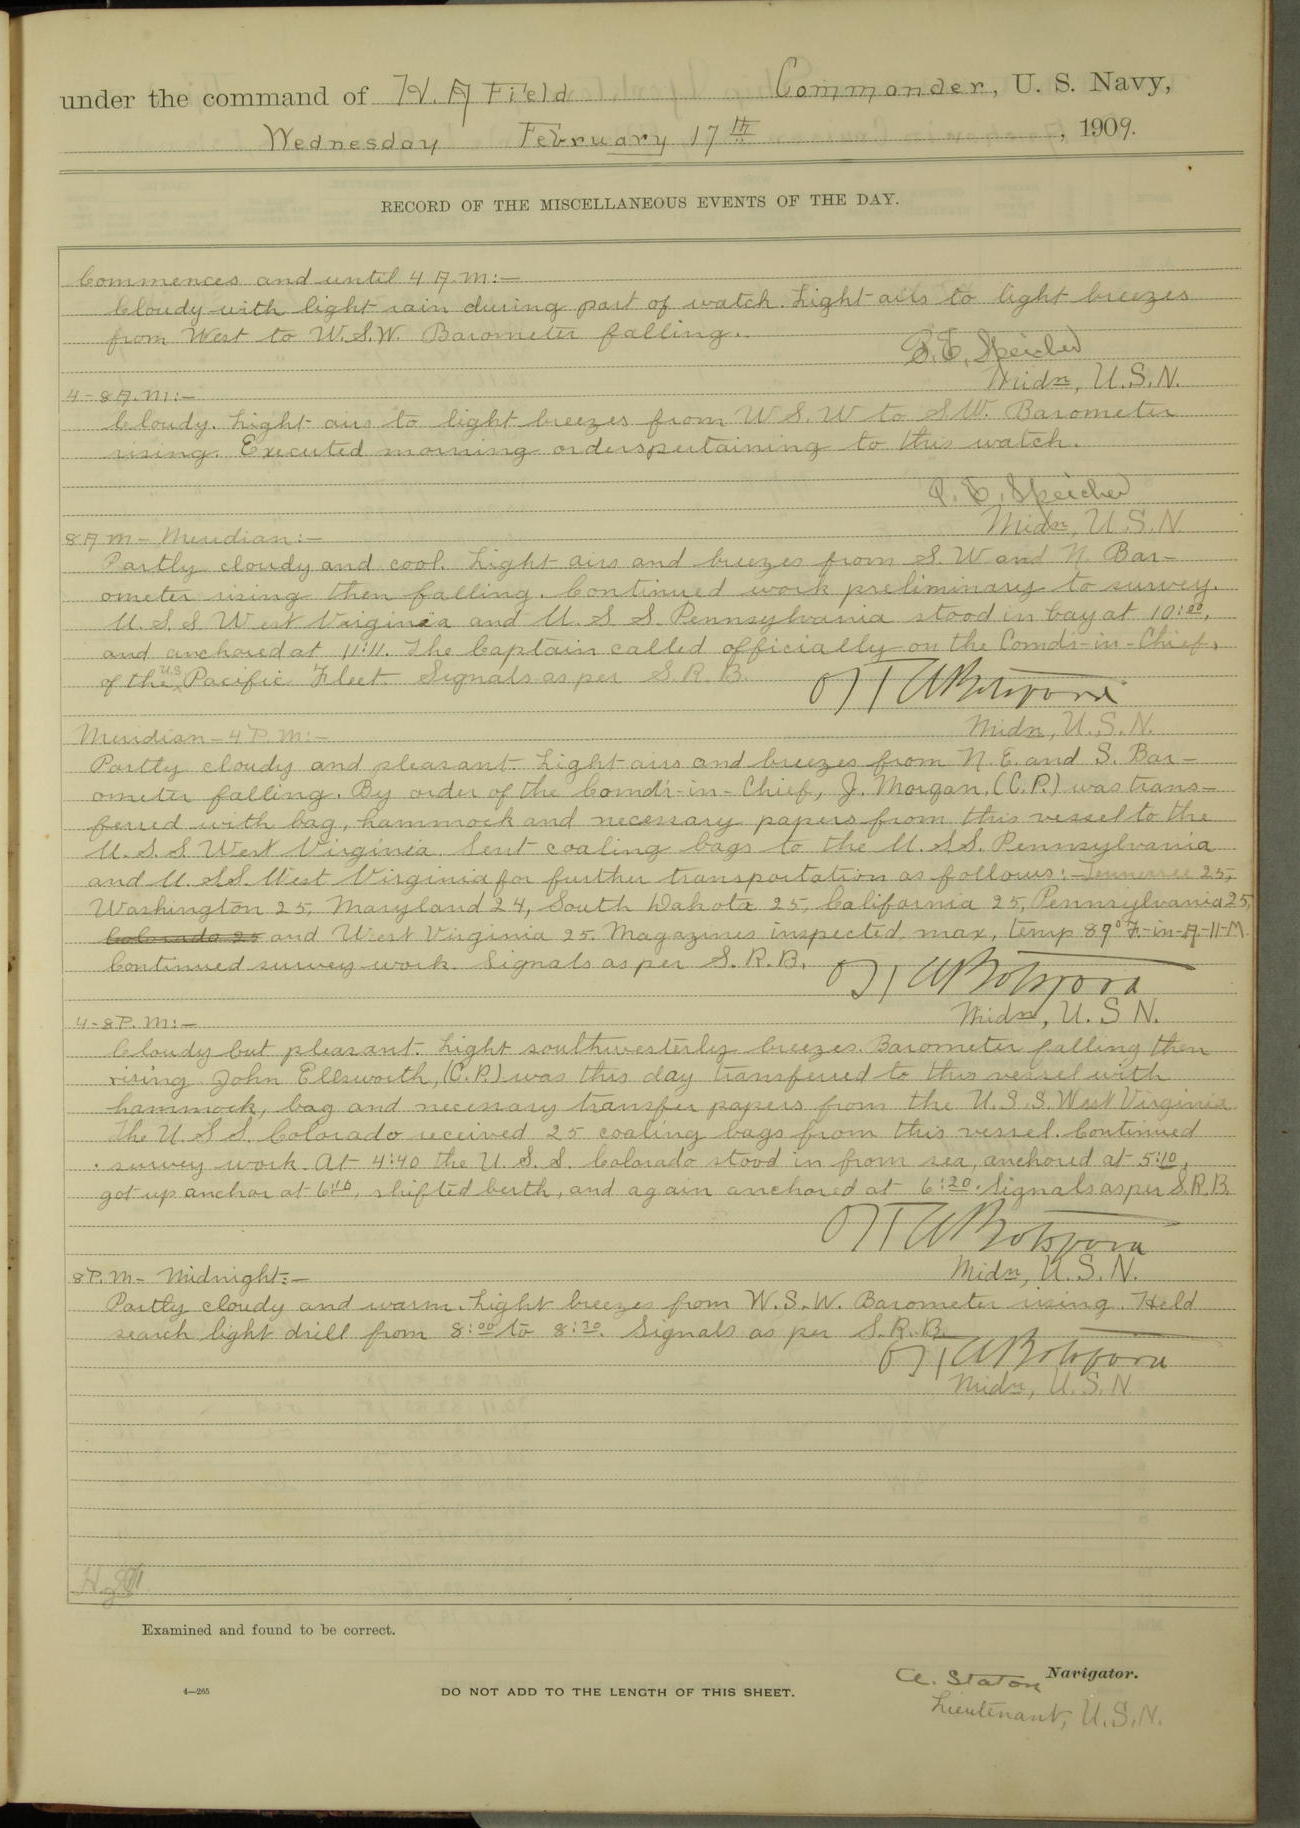 under the command of H. A Field Commander, U. S. Navy,
Wednesday February 17th, 1909.
RECORD OF THE MISCELLANEOUS EVENTS OF THE DAY.
Commences and until 4 A.M:-
Cloudy with light rain during part of watch. Light airs to light breezes
from West to W.S.W. Barometer falling.
P. E. Speicher
Midn, U.S.N.
4-8 A.M:-
Cloudy. Light airs to light breezes from W S.W to SW. Barometer
rising. Executed morning orders pertaining to this watch.
P. E. Speicher
Midn, U.S.N
8 A M - Meridian:-
Partly cloudy and cool. Light airs and breezes from S. W and N. Bar-
ometer rising then falling. Continued work preliminary to survey.
U.S.S West Virginia and U S S Pennsylvania stood in bay at 10:20,
and anchored at 11:11. The Captain called officially on the Comdr-in-Chief,
of the U.S Pacific Fleet. Signals as per S. R. B.
Midn, U.S.N.
Meridian - 4 P.M:-
Partly cloudy and pleasant. Light airs and breezes from N. E. and S. Bar-
ometer falling. By order of the Comdr-in-Chief, J. Morgan, (C.P.) was trans-
ferred with bag, hammock and necessary papers from this vessel to the
U.S.S West Virginia. Sent coaling bags to the U.S.S. Pennsylvania
and U.S.S. West Virginia for further transportation as follows:- Tennessee 25,
Washington 25, Maryland 24, South Dakota 25, California 25, Pennsylvania 25,
Colorado 25 and West Virginia 25. Magazines inspected, max, temp 89° F.-in-A-11-M
Continued survey work. Signals as per S. R. B.
Midn, U. S N.
4-8 P. M:-
Cloudy but pleasant. Light southwesterly breezes. Barometer falling then
rising. John Ellsworth, (C.P.) was this day transferred to this vessel with
hammock, bag and necessary transfer papers from the U.S.S. West Virginia
The U.S S. Colorado received 25 coaling bags from this vessel. Continued
survey work. At 4:40 the U. S. S. Colorado stood in from sea, anchored at 5:10,
got up anchor at 6:10, shifted berth, and again anchored at 6:20. Signals as per S.R.B.
Midn, U.S.N.
8 P.M- Midnight:-
Partly cloudy and warm. Light breezes from W.S.W. Barometer rising. Held
search light drill from 8:00 to 8:30. Signals as per S.R.B.
Midn, U.S.N
Examined and found to be correct.
A. Staton Navigator.
4—265 DO NOT ADD TO THE LENGTH OF THIS SHEET.
Lieutenant, U.S.N.